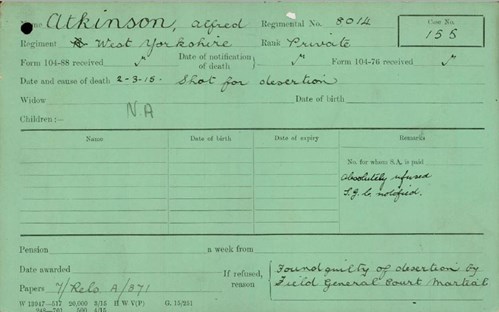 Name Atkinson, Alfred Regimental No. 8014 Case No. 155
Regiment West Yorkshire Rank Private
Form 104-88 received ✓ Date of notification of death} ✓ Form 104-76 received ✓
Date and cause of death 2-3-15. Shot for desertion
Widow Date of birth
Children:— N.A
Name Date of birth Date of expiry Remarks
No. for whom S.A. is paid
Absolutely refused
S.G. be notified.
Pension a week from
Date awarded If refused, reason { Found guilty of desertion by
Papers 7/Relo A/871 Field General Court Martial
W 13947—517 20,000 3/15 H W V(P) G. 15/251